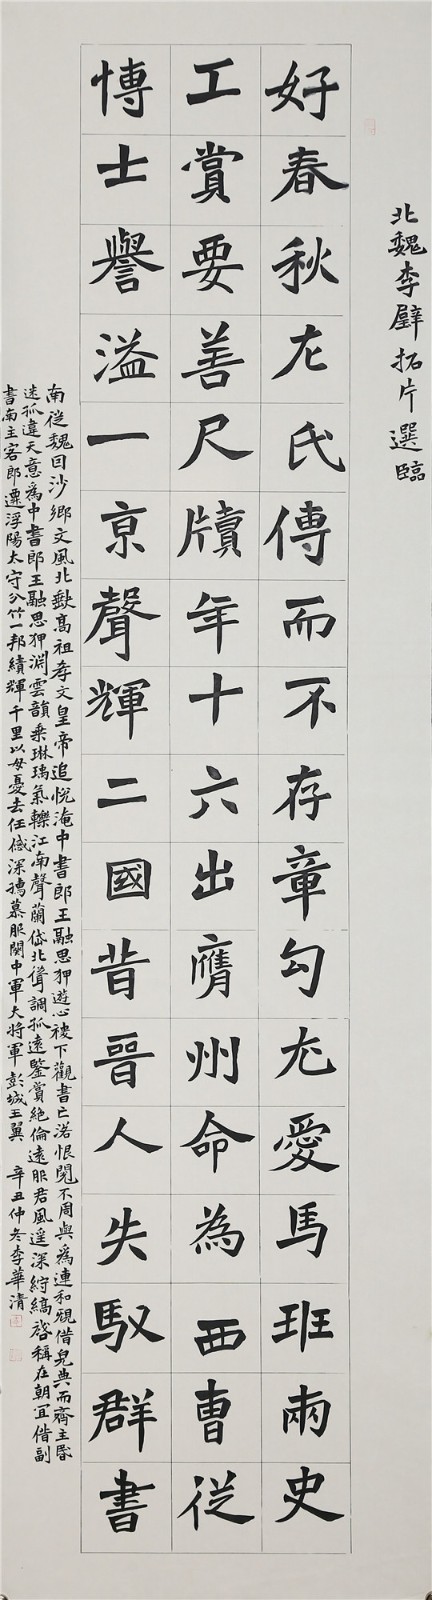 北魏李璧拓片選臨
好春秋左氏傳而不存章勾尤愛馬班兩史
工賞要善尺牘年十六出膺州命為西曹従
博士譽溢一京聲輝二國昔晉人失馭群書
南従魏因沙鄉文風北缺高祖孝文皇帝追悅淹中書郎王融思狎遊心稷下觀書亡落恨閱不周與為連和規借完典而齊主昏
迷孤違天意為中書郎王融思狎淵雲韻乘琳瑀氣轢江南聲蘭岱北聳調孤遠鑒賞絕倫遠服君風遥深紵縞啓稱在朝宜借副
書南主客郎遷浮陽太守分竹一邦績輝千里以母憂去任俄深孺慕服闋中軍大將軍彭城王翼 辛丑仲冬李華清